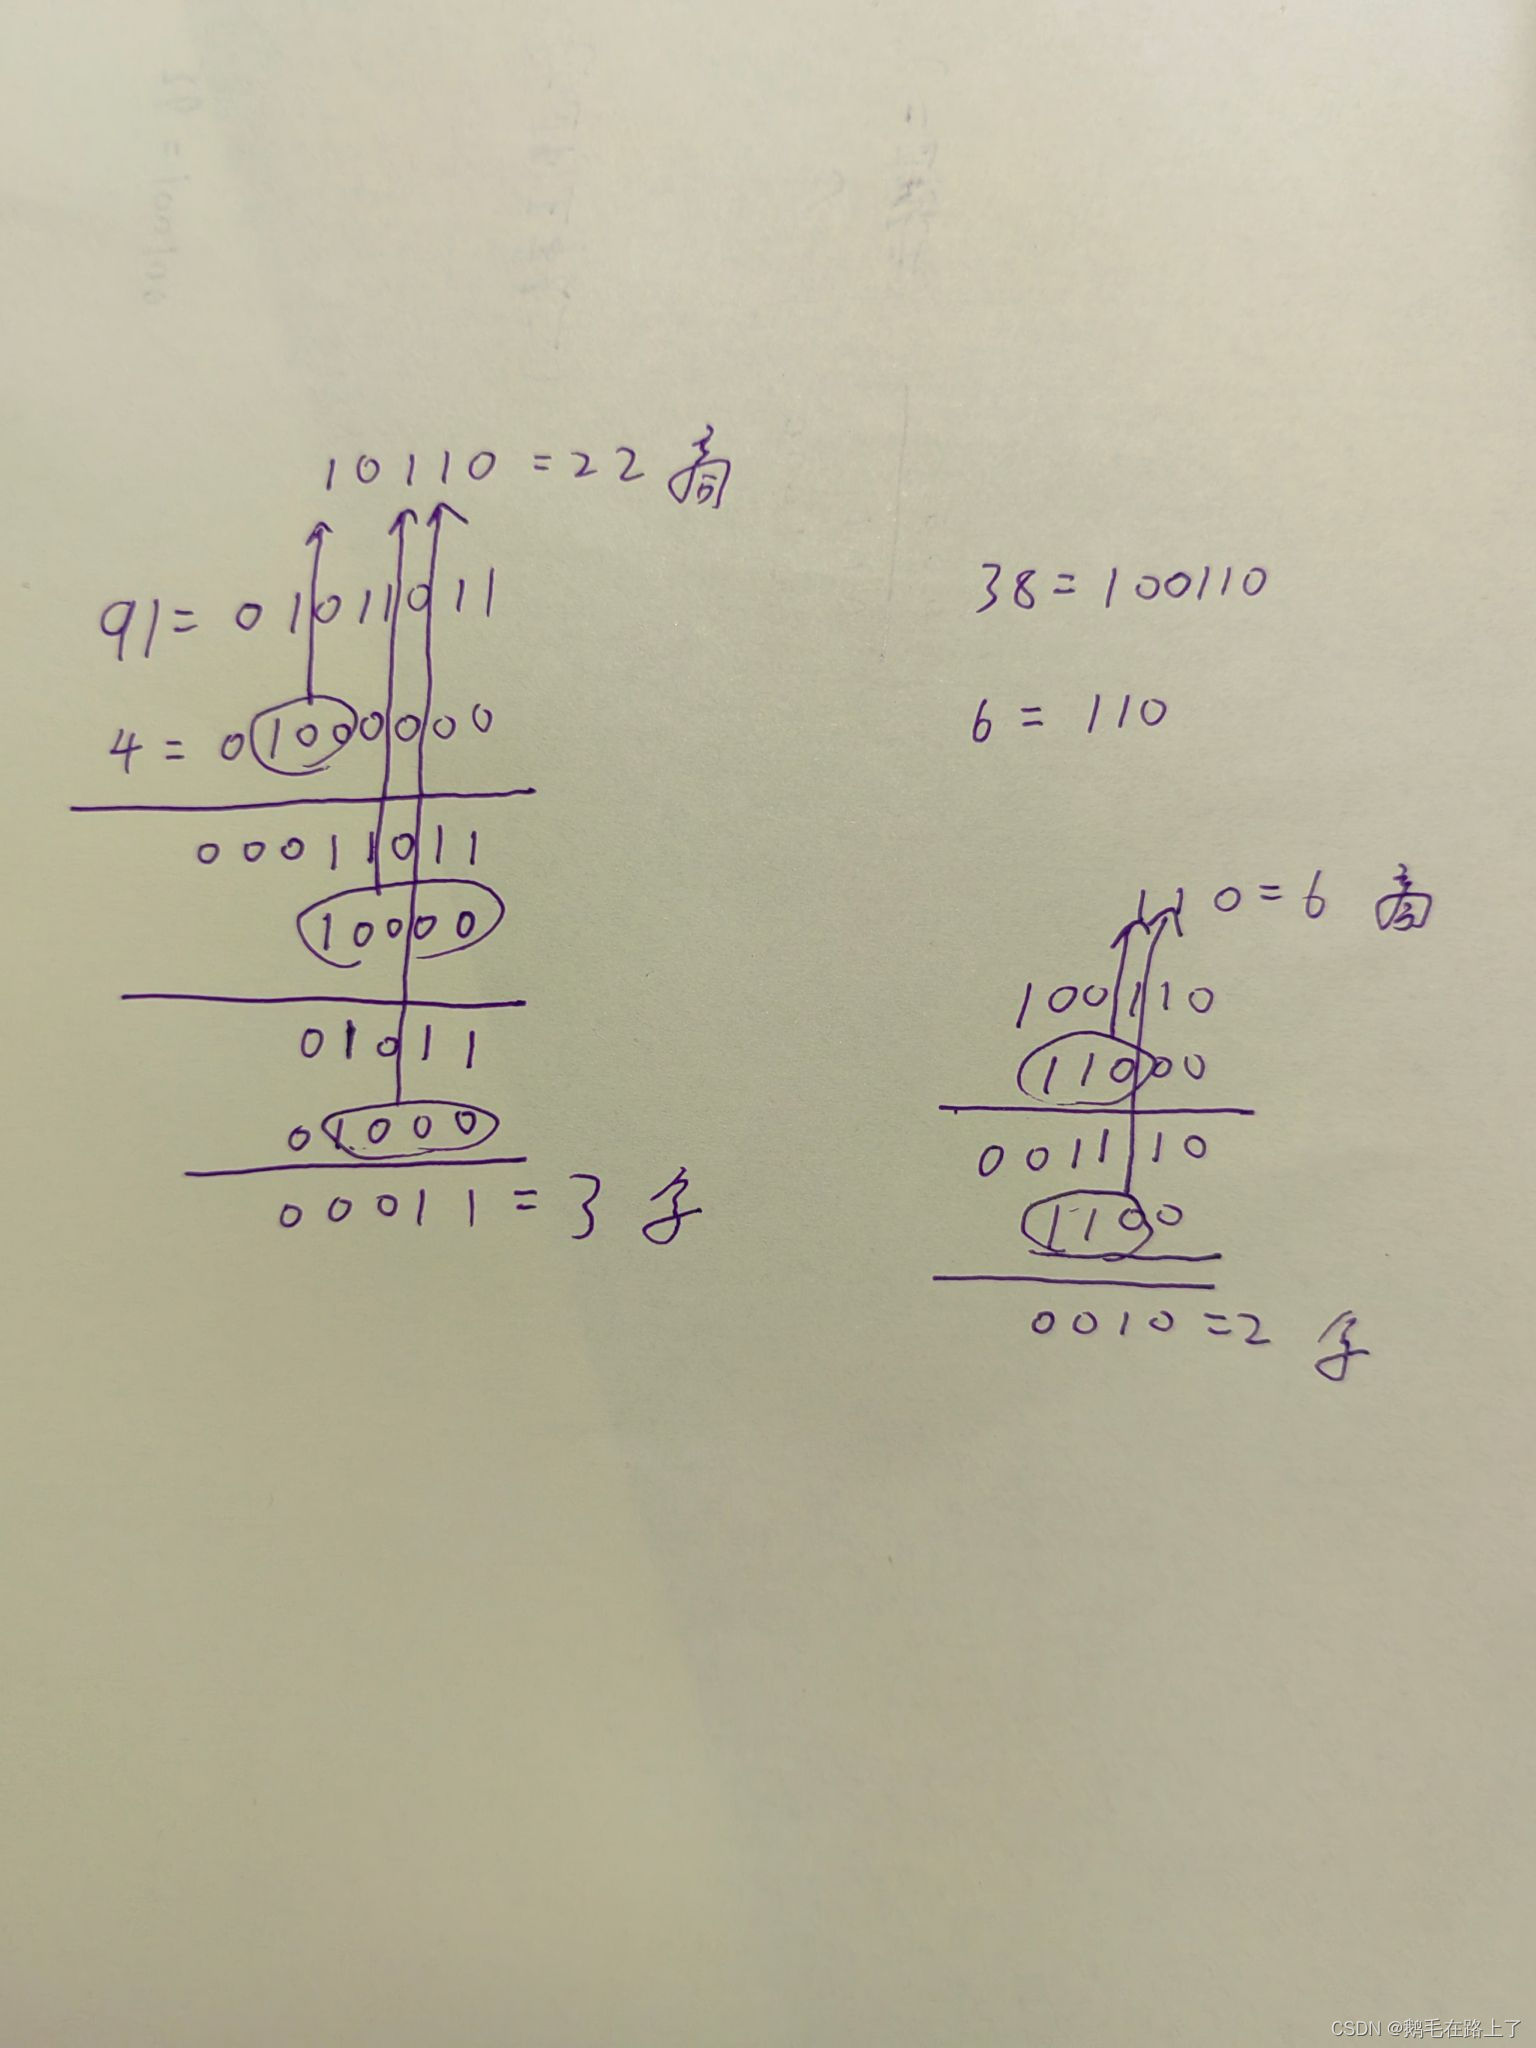 10110 = 22 商
91 = 01011011
4 = 01000000
00011011
10000
01011
01000
00011 = 3 余
38 = 100110
6 = 110
110 = 6 商
100110
11000
001110
1100
0010 = 2 余
CSDN @鹅毛在路上了